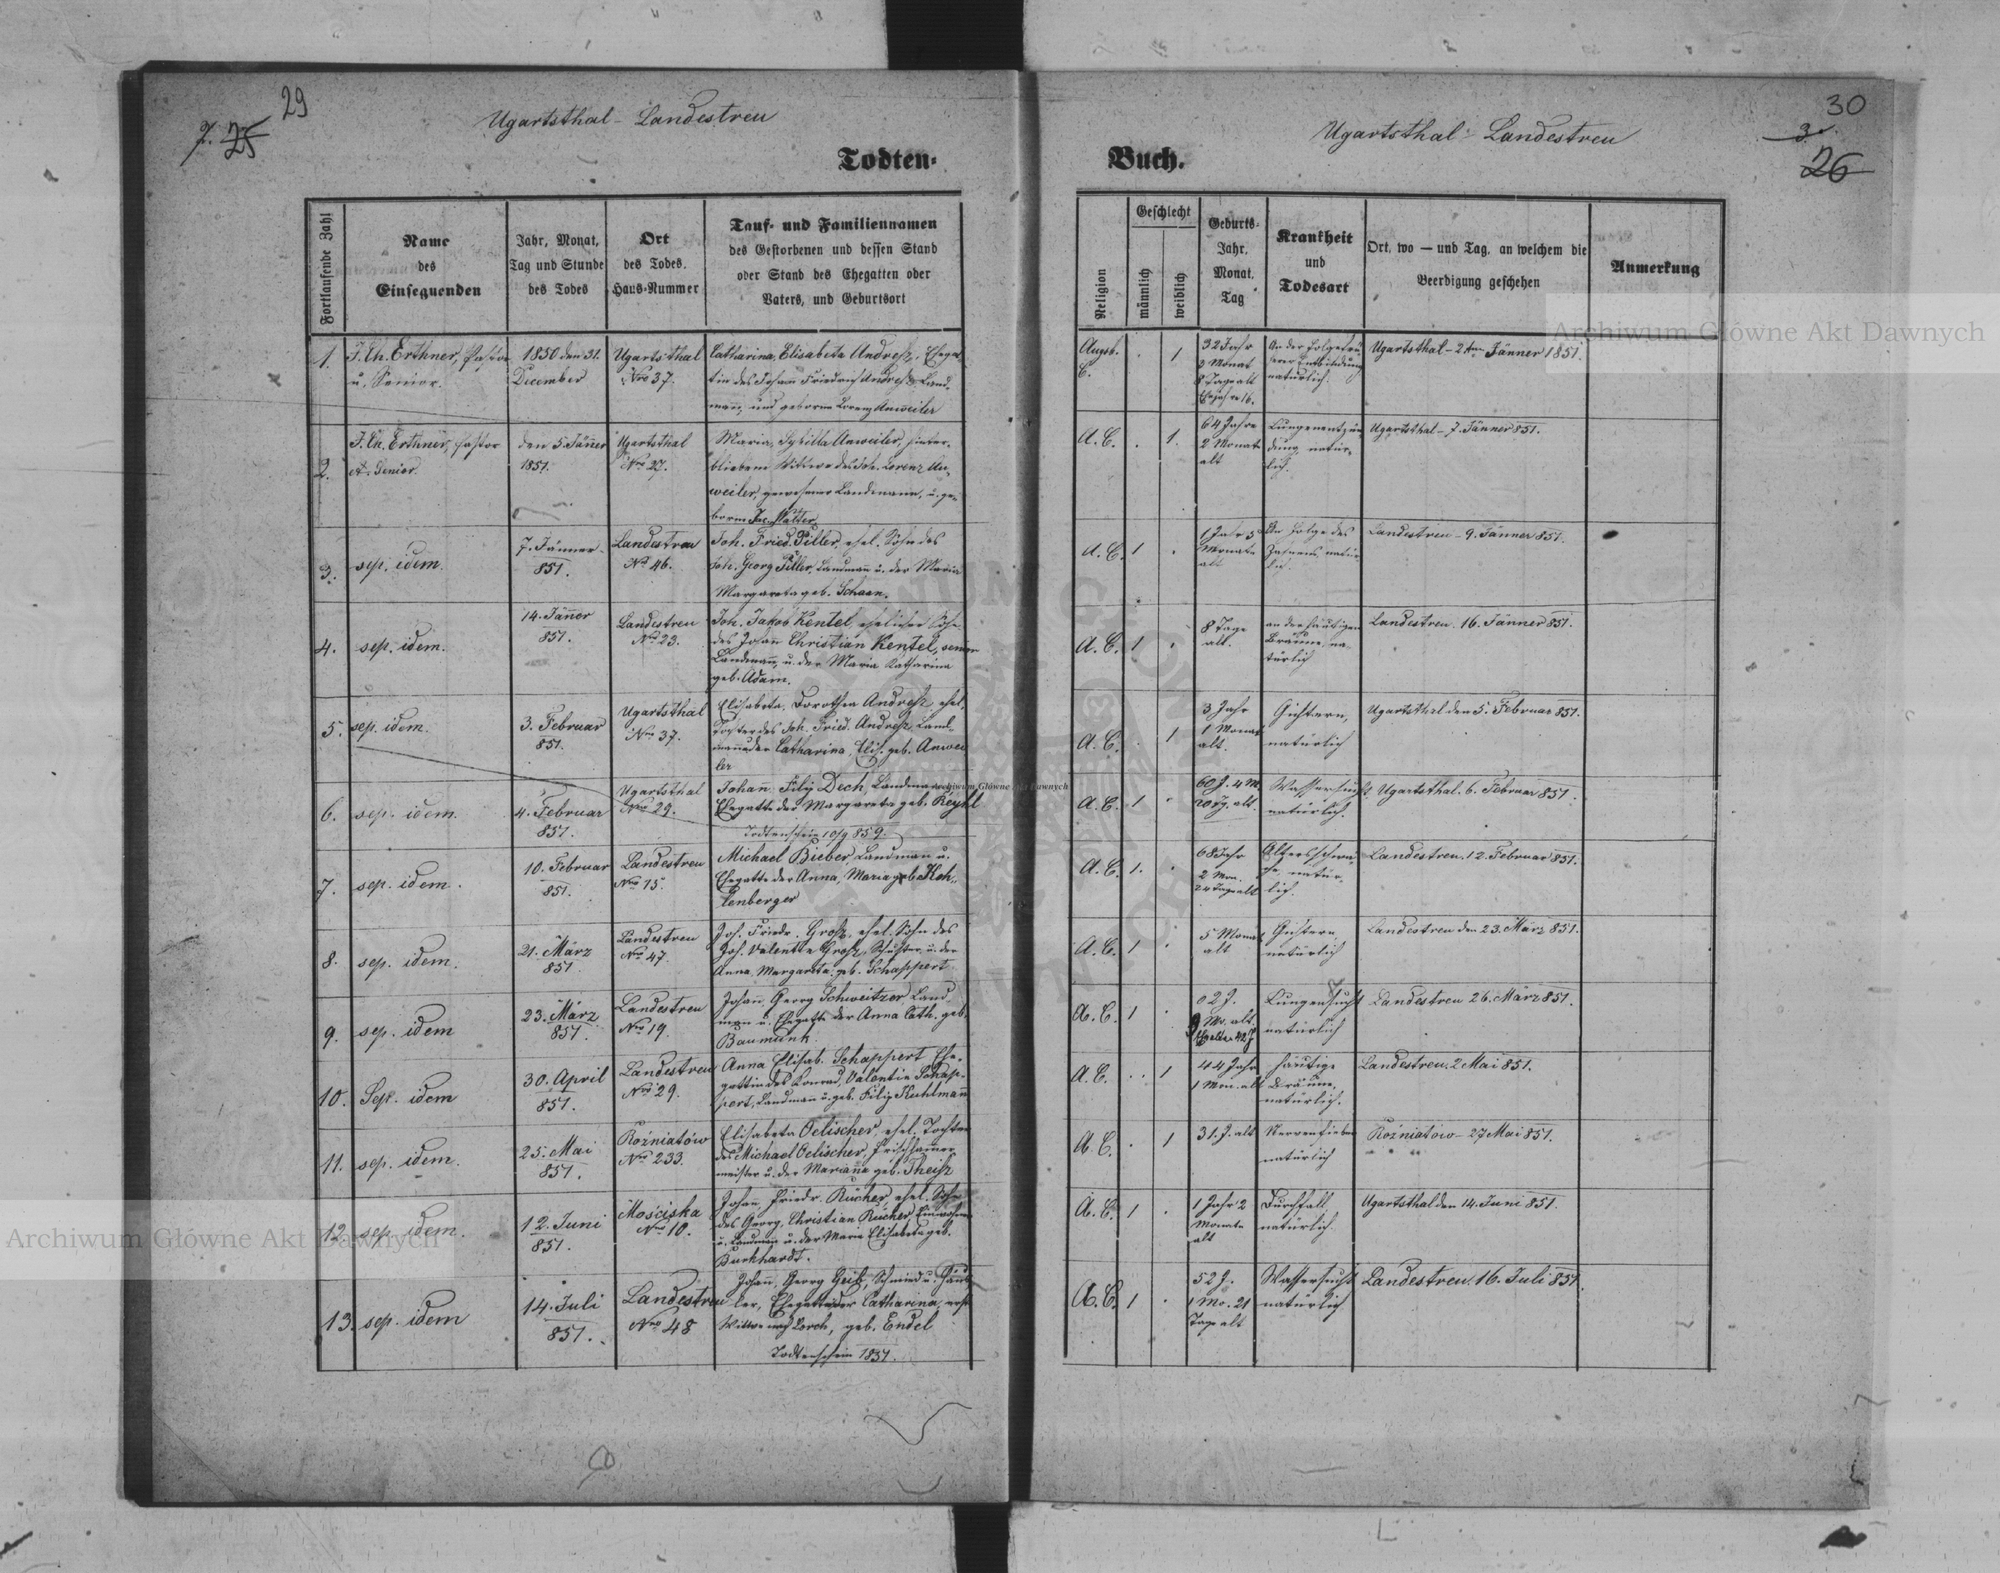 29
7. 25
Ugartsthal - Landestreu
Todten=
Fortlaufende Zahl
Name
des
Einsegnenden
Jahr, Monat,
Tag und Stunde
des Todes
Ort
des Todes.
Haus-Nummer
Tauf- und Familiennamen
des Gestorbenen und dessen Stand
oder Stand des Ehegatten oder
Vaters, und Geburtsort
1.
J. Ch. Erthner, Pastor
u. Senior.
1850 den 31.
December
Ugartsthal
Nro 37.
Catharina, Elisabeta Andreß, Ehegat-
tin des Johann Friedrich Andreß Land-
mann, und geborne Lorenz Anweiler
2.
J. Ch. Erthner, Pastor
et Senior.
den 5. Jänner
1851.
Ugartsthal
Nro 27.
Maria, Sybilla Anweiler, hinter-
bliebene Wittwe des Joh. Lorenz An-
weiler, gewesener Landmann, u. ge-
borne Jac. Walter.
3.
sep. idem.
7. Jänner
851.
Landestreu
No 46.
Joh. Fried. Piller, ehel. Sohn des
Joh. Georg Piller, Landmann u. der Maria
Margareta geb. Schaan.
4.
sep. idem.
14. Jänner
851.
Landestreu
No 23.
Joh. Jakob Kentel, ehelicher Sohn
des Johann Christian Kentel,
Landmann, u. der Maria Katharina
geb. Adam.
5.
sep. idem.
3. Februar
851.
Ugartsthal
Nro 37.
Elisabeta, Dorothea Andreß, ehel.
Tochter des Joh. Fried. Andreß, Land-
mann u der Catharina, Elis. geb. Anwei
ler
6.
sep. idem.
4. Februar
851.
Ugartsthal
Nro 29.
Johann Filip Dech, Landmann
Ehegatte der Margareta geb. Keyhl
Todtenschein 10/9 859.
7.
sep. idem.
10. Februar
851.
Landestreu
Nro 15.
Michael Bieber, Landmann u.
Ehegatte der Anna, Maria geb. Koh-
lenberger
8.
sep. idem.
21. März
851
Landestreu
No 47.
Joh. Friedr. Groß, ehel. Sohn des
Joh. Valentin Groß, Schuster, u. der
Anna, Margareta geb. Schappert.
9.
sep. idem
23. März
851.
Landestreu
Nro 19.
Johann, Georg Schweitzer, Land-
mann u. Ehegatte der Anna Cath. geb.
Baumunk.
10.
Sep. idem
30. April
851.
Landestreu
Nro 29.
Anna Elisab. Schappert Ehe-
gattin des Konrad, Valentin Schap-
pert, Landmann u. geb. Filip Kuhlmann
11.
sep. idem.
25. Mai
851.
Rożniatów
No 233.
Elisabeta Oelischer, ehel. Tochter
des Michael Oelischer, Frischhammer-
meister u. der Marianna geb. Theiß
12.
sep. idem.
12. Juni
851.
Mosciska
No 10.
Johann Friedr. Rücher, ehel. Sohn
des Georg, Christian Rücher, Einwohner
u. Landmann u. der Maria Elisabeta geb.
Burkhardt.
13.
sep. idem
14. Juli
851.
Landestreu
Nro 48
Johann, Georg Geib, Schmied u. Häus-
ler, Ehegatte der Catharina,
Wittwe nach Lorch, geb. Endel
Todtenschein 1851.
30
3.
26
Ugartsthal - Landestreu
Buch.
Religion
Geschlecht
männlich
weiblich
Geburts-
Jahr,
Monat,
Tag
Krankheit
und
Todesart
Ort, wo — und Tag, an welchem die
Beerdigung geschehen
Anmerkung
Augsb.
C.
1
32 Jahr
Monat
8 Tage alt
Ehejahre 16.
An der Folge
Entbindung
natürlich.
Ugartsthal - 2ten Jänner 1851.
A. C.
1.
64 Jahre
2 Monate
alt
Lungenentzün-
dung, natür-
lich.
Ugartsthal - 7. Jänner 851.
A. C.
1
1 Jahr 5
Monate
alt
In Folge des
Zahnens, natür-
lich.
Landestreu - 9. Jänner 851.
A. C.
1
8 Tage
alt.
an der häutigen
Bräune, na-
türlich
Landestreu. 16. Jänner 851.
A. C.
1
3 Jahr
1 Monat
alt.
Gichtern,
natürlich
Ugartsthal den 5. Februar 851.
A. C.
1
60 J. 4 M.
20 Tg. alt.
Wassersucht
natürlich.
Ugartsthal. 6. Februar 851.
A. C.
1.
68 Jahr
2 Mon.
24 Tage alt
Altersschwä-
che, natür-
lich.
Landestreu. 12. Februar 851.
A. C.
1
5 Monat
alt
Gichtern
natürlich
Landestreu den 23. März 851.
A. C.
1
2 J.
9 Mo. alt.
Lungensucht
natürlich
Landestreu 26. März 851.
A. C.
1
44 Jahr
1 Mon. alt
häutige
Bräune,
natürlich.
Landestreu. 2 Mai 851.
A. C.
1
31. J. alt
Nervenfieber
natürlich
Rożniatów - 27 Mai 851.
A. C.
1
1 Jahr 2
Monate
alt
Durchfall
natürlich.
Ugartsthal den 14. Juni 851.
A. C.
1
52 J.
1 Mo. 21
Tage alt
Wassersucht
natürlich
Landestreu. 16. Juli 851.
Archiwum Główne Akt Dawnych
Archiwum Główne Akt Dawnych
Archiwum Główne Akt Dawnych